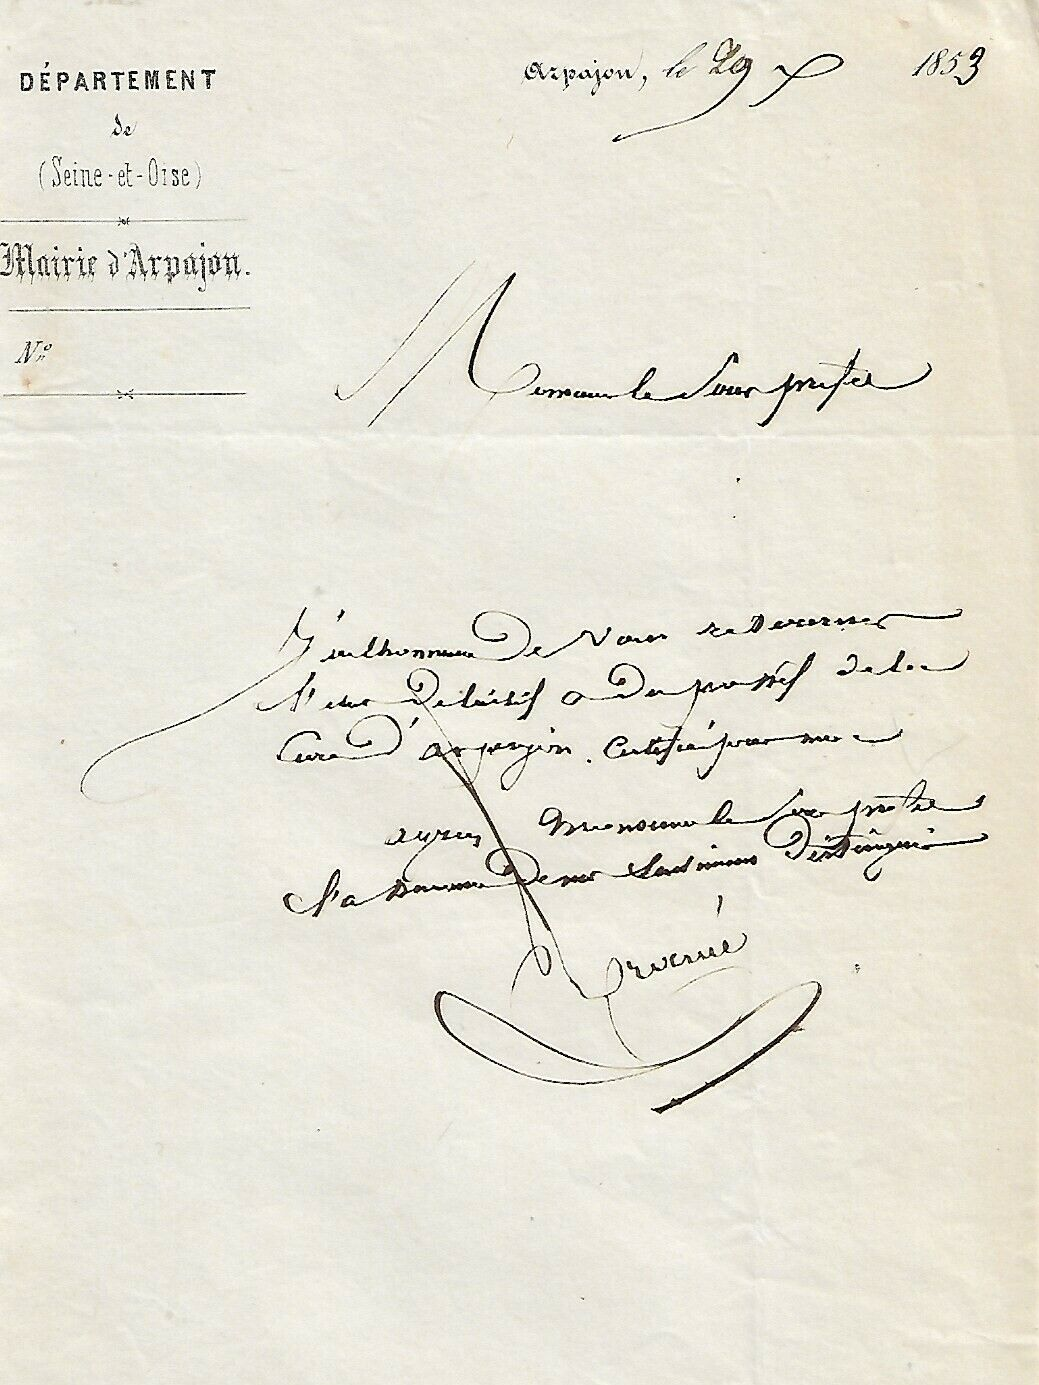 DÉPARTEMENT
de
(Seine-et-Oise)
Mairie d'Arpajon.
N°
Arpajon, le 29 1853
Monsieur le Sous préfet
J'ai l'honneur de vous retourner
l'etat de l'actif & du passif de la
Cure d'arpajon. Certifié par moi
ayrez Monsieur le Sous préfet
l'assurance de mes sentimens distingués